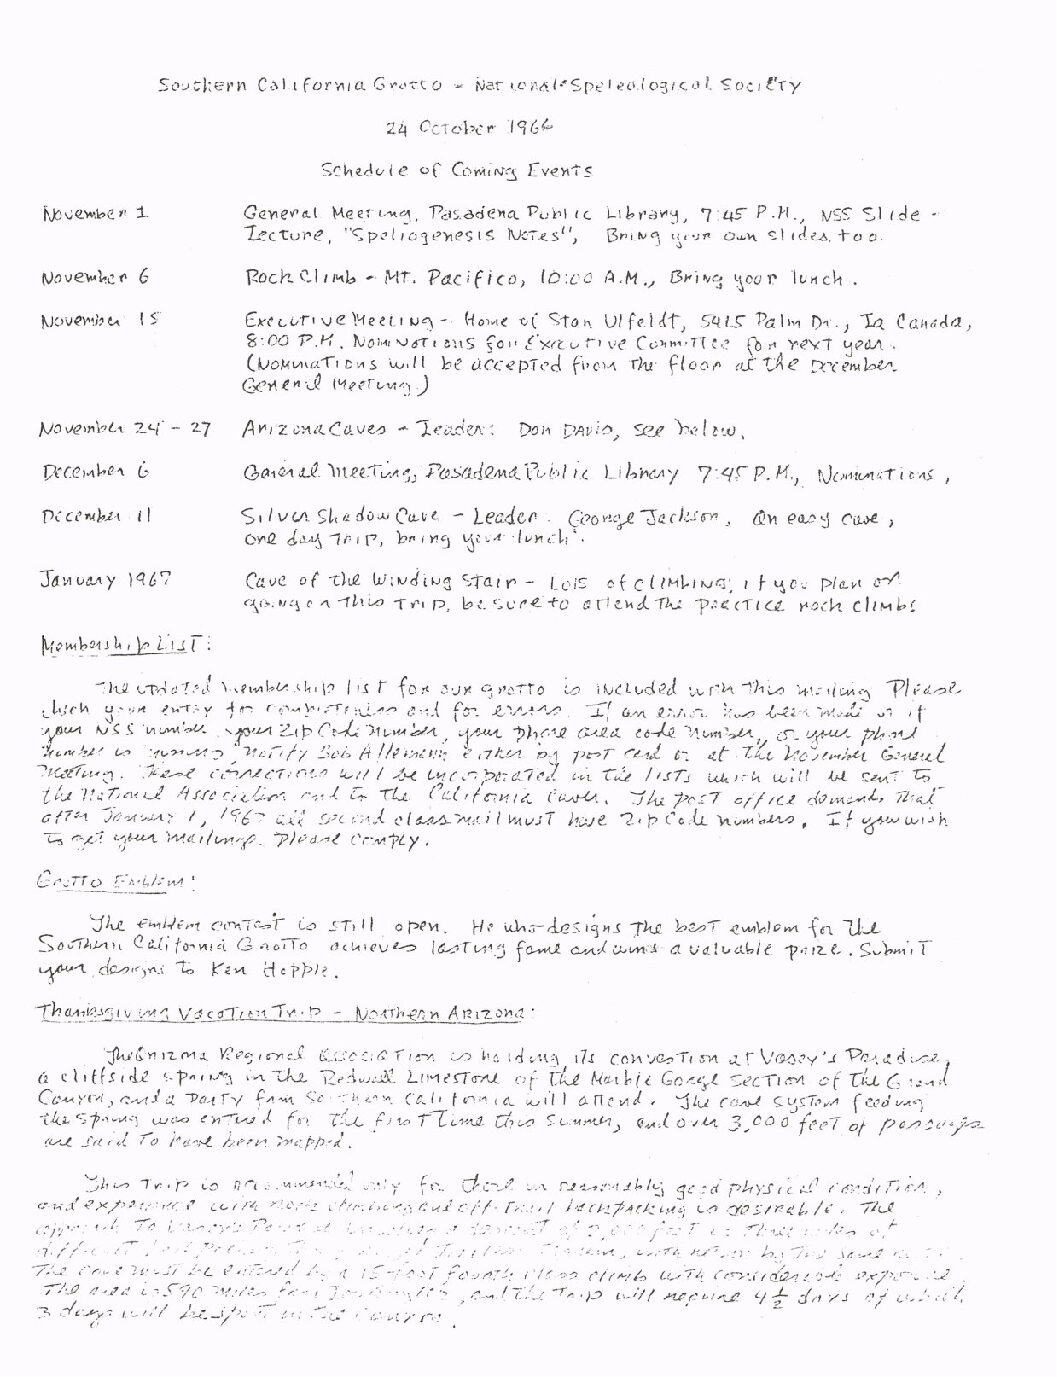 Southern California Grotto - National Speleological Society
24 October 1966
Schedule of Coming Events
November 1 General Meeting, Pasadena Public Library, 7:45 P.M., NSS Slide -
Lecture, "Speliogenesis Notes", Bring your own slides, too.
November 6 Rock Climb - Mt. Pacifico, 10:00 A.M., Bring your lunch.
November 15 Executive Meeting - Home of Stan Ulfeldt, 5415 Palm Dr., La Canada,
8:00 P.M. Nominations for Executive Committee for next year.
(Nominations will be accepted from the floor at the December
General Meeting.)
November 24 - 27 Arizona Caves - Leader: Don Davis, see below.
December 6 General Meeting, Pasadena Public Library 7:45 P.M., Nominations,
December 11 Silver Shadow Cave - Leader: George Jackson, An easy cave,
one day trip, bring your lunch.
January 1967 Cave of the Winding Stair - Lots of climbing, if you plan on
going on this trip, be sure to attend the practice rock climbs
Membership List:
The updated membership list for our grotto is included with this mailing Please
check your entry for completeness and for errors. If an error has been made or if
your NSS number, your Zip Code Number, your phone area code number, or your phone
number is missing, notify Bob Allemen either by post card or at the November General
Meeting. These corrections will be incorporated in the lists which will be sent to
the National Association and to the California Caver. The post office demands that
after January 1, 1967 all second class mail must have Zip Code numbers. If you wish
to get your mailings. Please comply.
Grotto Emblem:
The emblem contest is still open. He who designs the best emblem for the
Southern California Grotto achieves lasting fame and wins a valuable prize. Submit
your designs to Ken Hopple.
Thanksgiving Vacation Trip - Northern Arizona:
The Arizona Regional Association is holding its convention at Vasey's Paradise,
a cliffside spring in the Redwall Limestone of the Marble Gorge section of the Grand
Canyon, and a party from Southern California will attend. The cave system feeding
the spring was entered for the first time this summer, and over 3,000 feet of passages
are said to have been mapped.
This trip is recommended only for those in reasonably good physical condition,
and experience with rock climbing and off-trail backpacking is desirable. The
approach to Vasey's Paradise a descent of 2,000 feet in three miles of
difficult with return by the same
The cave must be entered by a 15-foot fourth class climb with considerable exposure.
The area is 590 miles from Los Angeles, and the trip will require 4½ days of which
3 days will be spent in the Canyon.